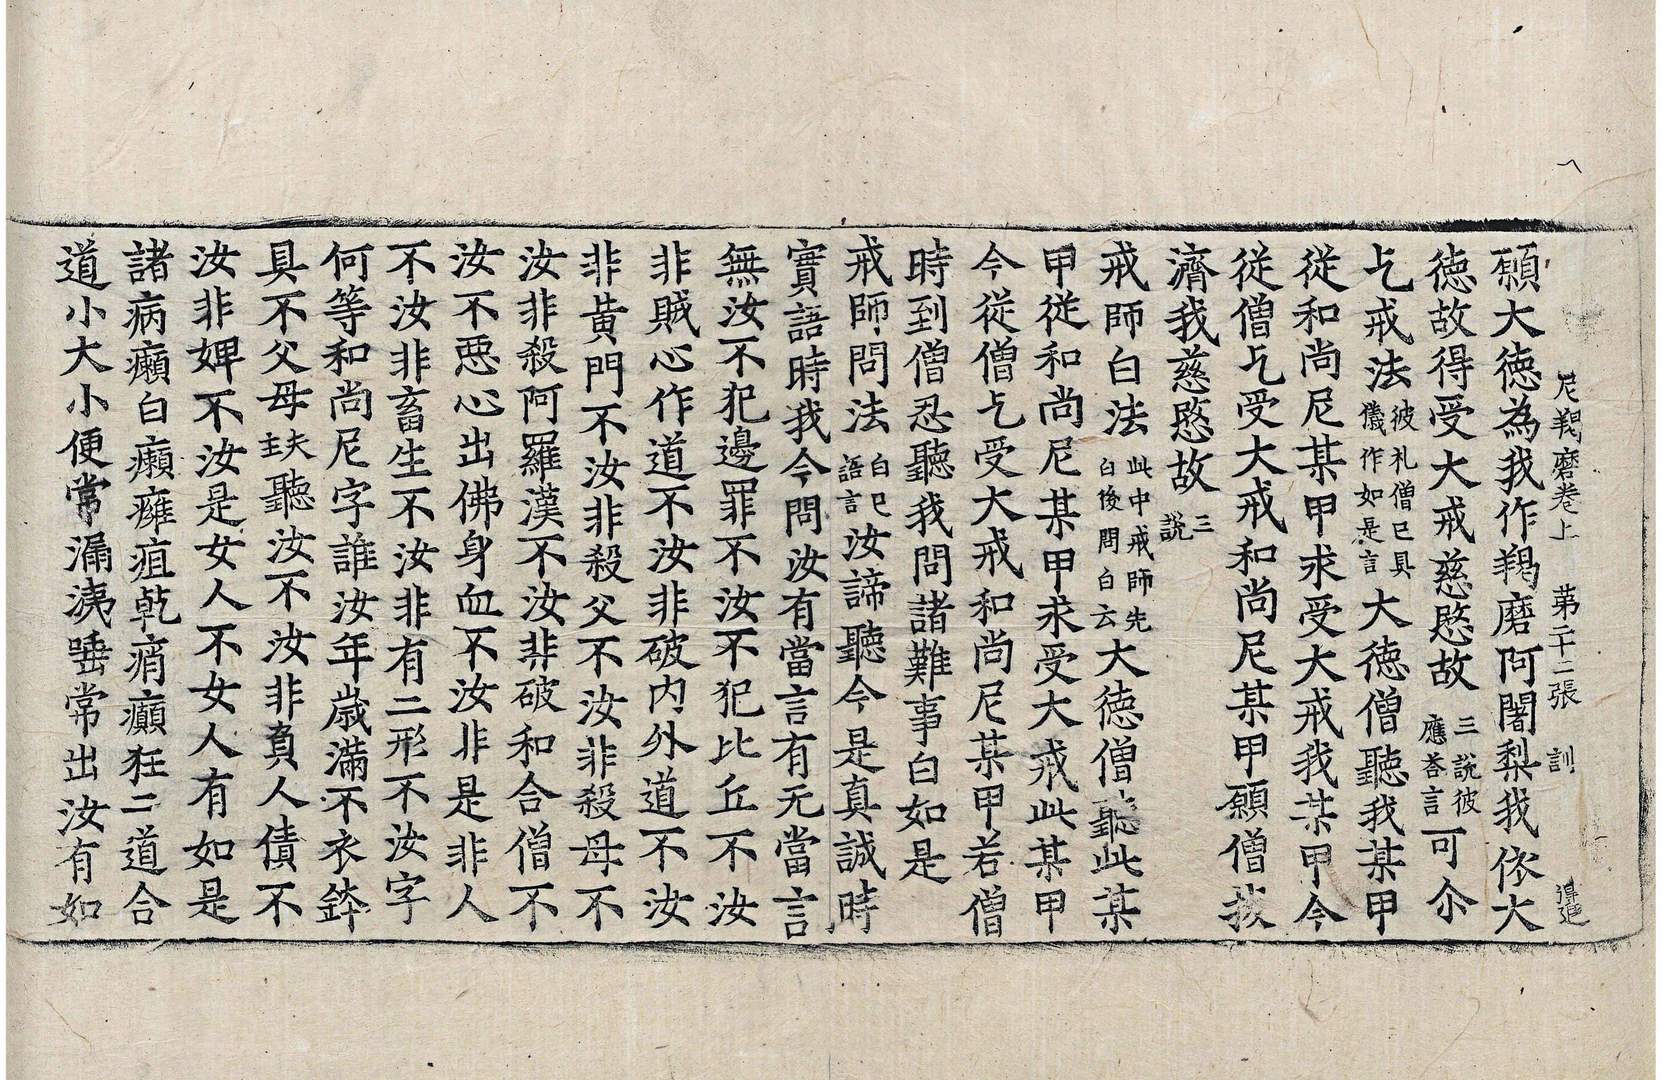 尼羯磨卷上 第二十二張 訓 邉
願大徳為我作羯磨阿闍梨我依大
徳故得受大戒慈愍故三說彼應荅言可尒
乞戒法彼礼僧已具儀作如是言大徳僧聽我某甲
從和尚尼某甲求受大戒我某甲今
從僧乞受大戒和尚尼某甲願僧拔
濟我慈愍故三說
戒師白法此中戒師先白後問白云大徳僧聽此某
甲從和尚尼某甲求受大戒此某甲
今從僧乞受大戒和尚尼某甲若僧
時到僧忍聽我問諸難事白如是
戒師問法白已語言汝諦聽今是真誠時
實語時我今問汝有當言有无當言
無汝不犯邊罪不汝不犯比丘不汝
非賊心作道不汝非破内外道不汝
非黃門不汝非殺父不汝非殺母不
汝非殺阿羅漢不汝非破和合僧不
汝不惡心出佛身血不汝非是非人
不汝非畜生不汝非有二形不汝字
何等和尚尼字誰汝年歳滿不衣鉢
具不父母夫主聽汝不汝非負人債不
汝非婢不汝是女人不女人有如是
諸病癩白癩癰疽乾痟癲狂二道合
道小大小便常漏洟唾常出汝有如